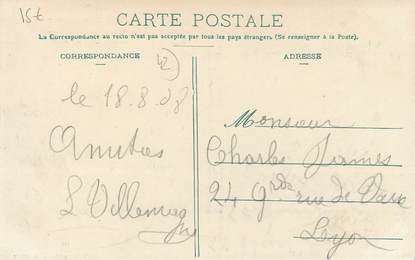 15€
CARTE POSTALE
La Correspondance au recto n'est pas acceptée par tous les pays étrangers. (Se renseigner à la Poste).
CORRESPONDANCE
42
ADRESSE
le 18.8.08
Monsieur
Amitiés
Charles James
24 gde rue de Vaise
Lyon